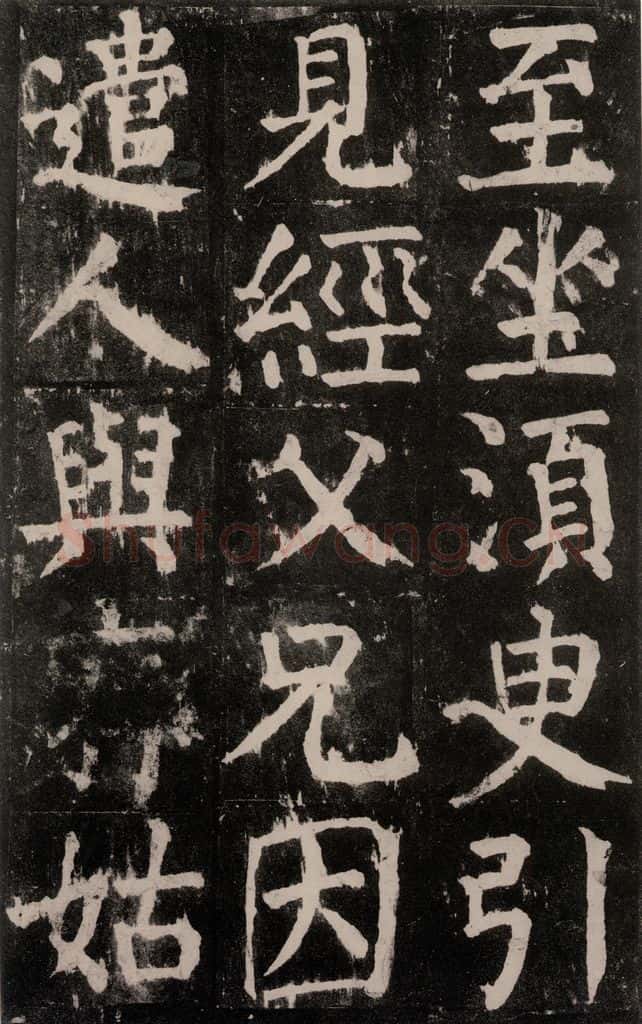 至坐須臾引
見經父兄因
遣人與
姑
shufawang.cn